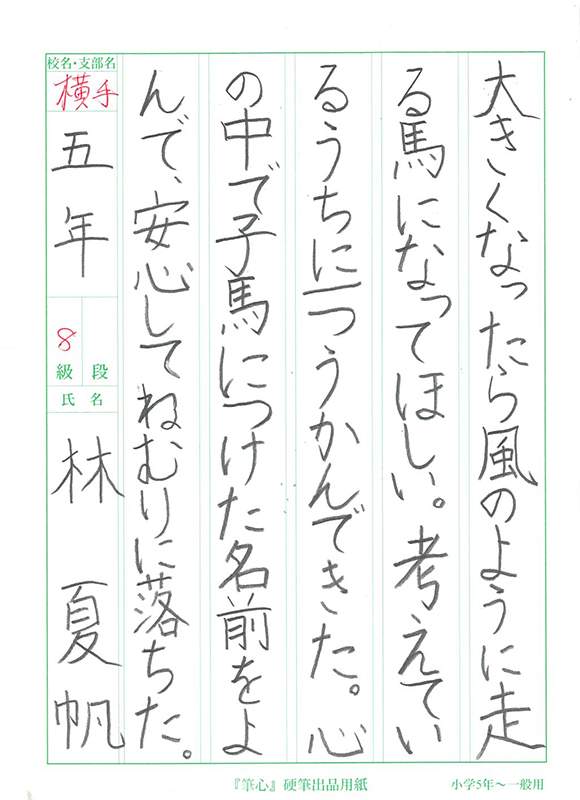 大きくなったら風のように走
る馬になってほしい。考えてい
るうちに一つうかんできた。心
の中で子馬につけた名前をよ
んで、安心してねむりに落ちた。
校名・支部名
横手
五年
8
級 段
氏名
林 夏帆
『筆心』硬筆出品用紙
小学5年～一般用